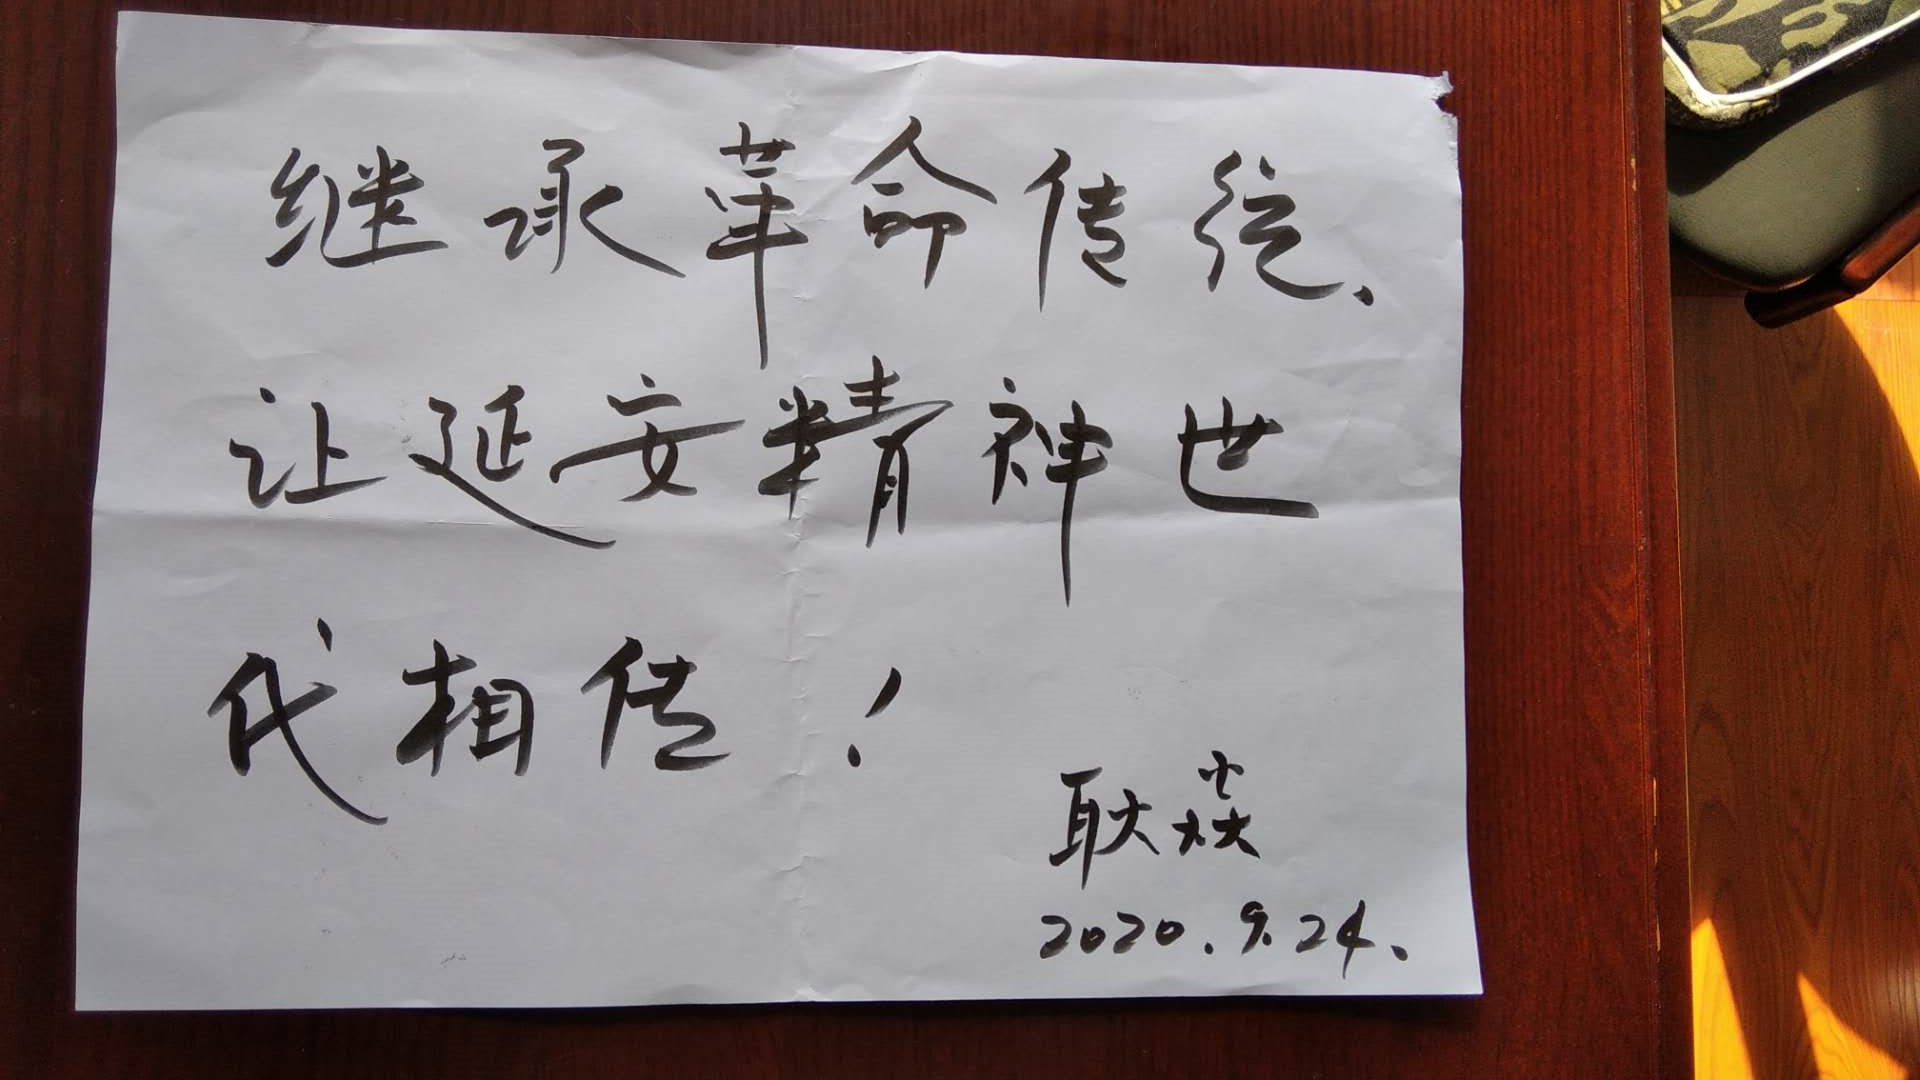 继承革命传统、
让延安精神世
代相传！
耿焱
2020.9.24、